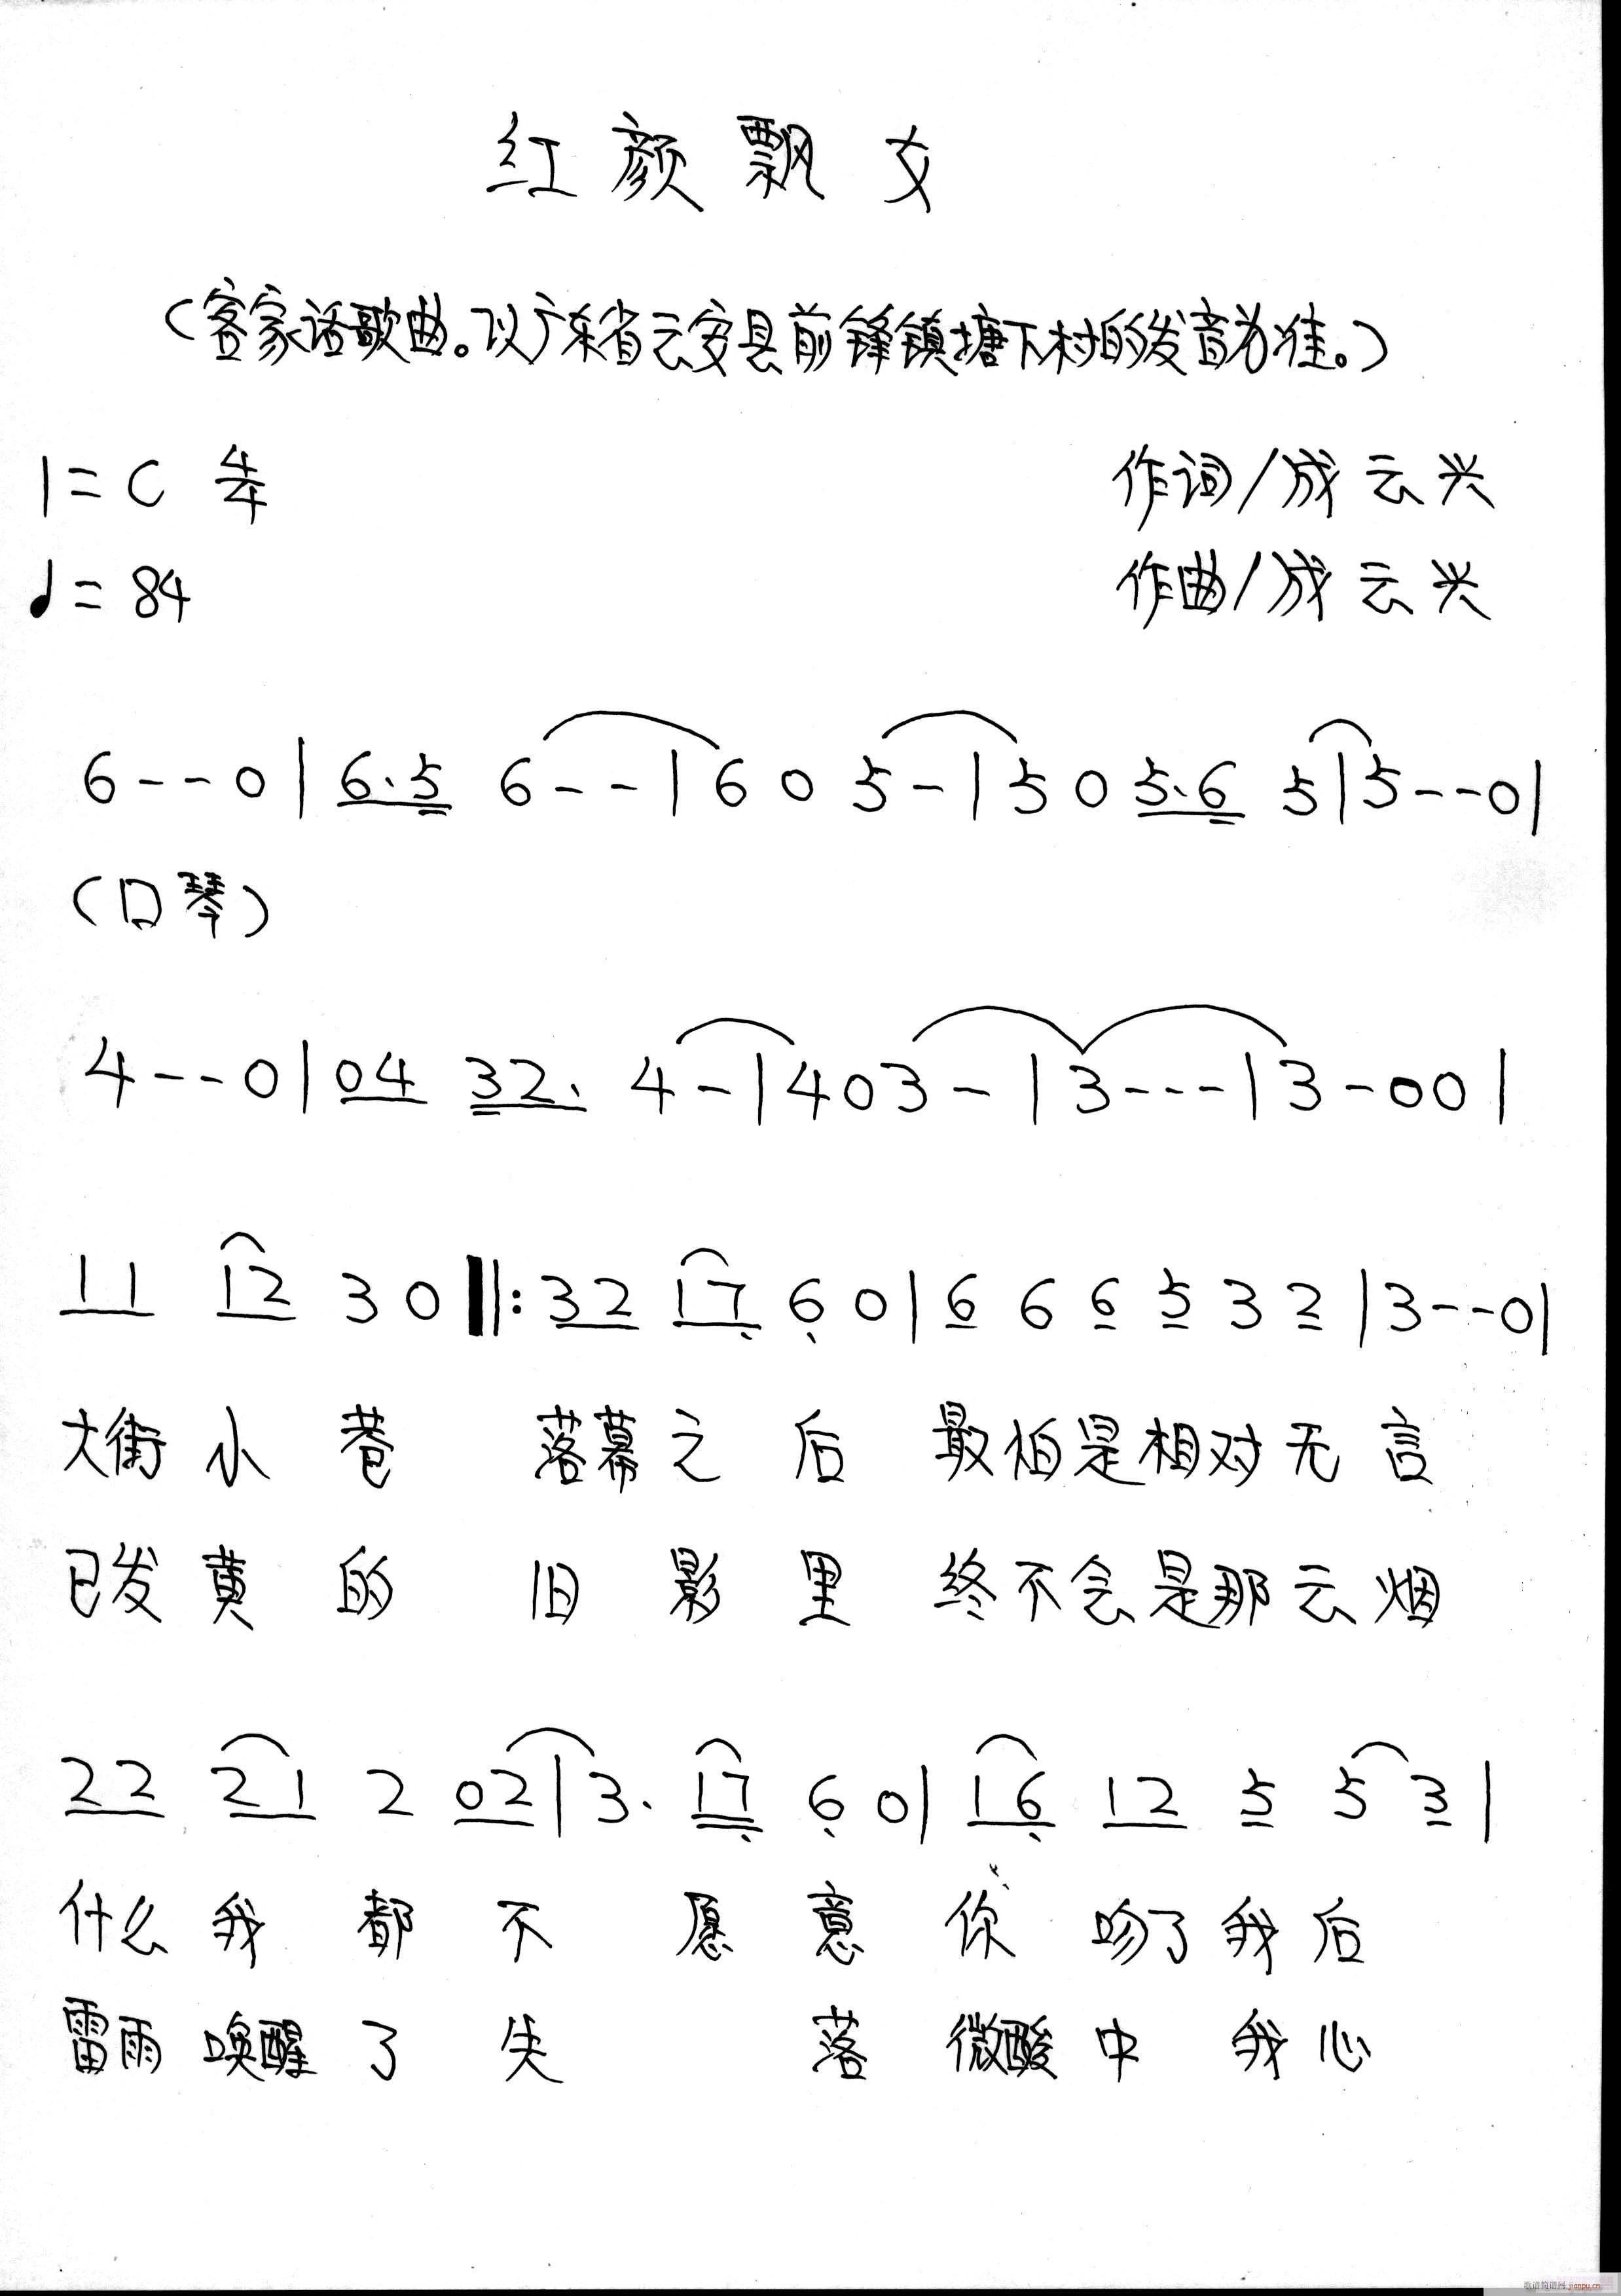 红颜飘女
(客家话歌曲。以广东省云安县前锋镇塘下村的发音为准。)
1=C 4/4 作词/成云兴
♩=84 作曲/成云兴
6--0|6.5 6--|605-|505.6 5|5--0|
(口琴)
4--0|04 32. 4-|403-|3---|3-00|
11 12 30‖:32 17 60|6 6 6 5 3 2|3--0|
大街小巷 落幕之后 最怕是相对无言
已发黄的 旧影里 终不会是那云烟
22 21 2 02|3. 17 60|16 12 5 5 3|
什么我都不愿意你吻了我后
雷雨唤醒了失落微酸中我心
歌谱简谱网 jianpu.cn